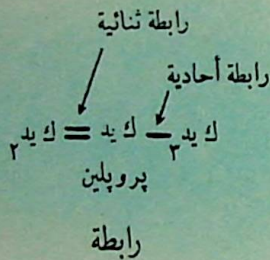 رابطة ثنائية
رابطة أحادية
ك يد٣ — ك يد = ك يد٢
پروپلين
رابطة